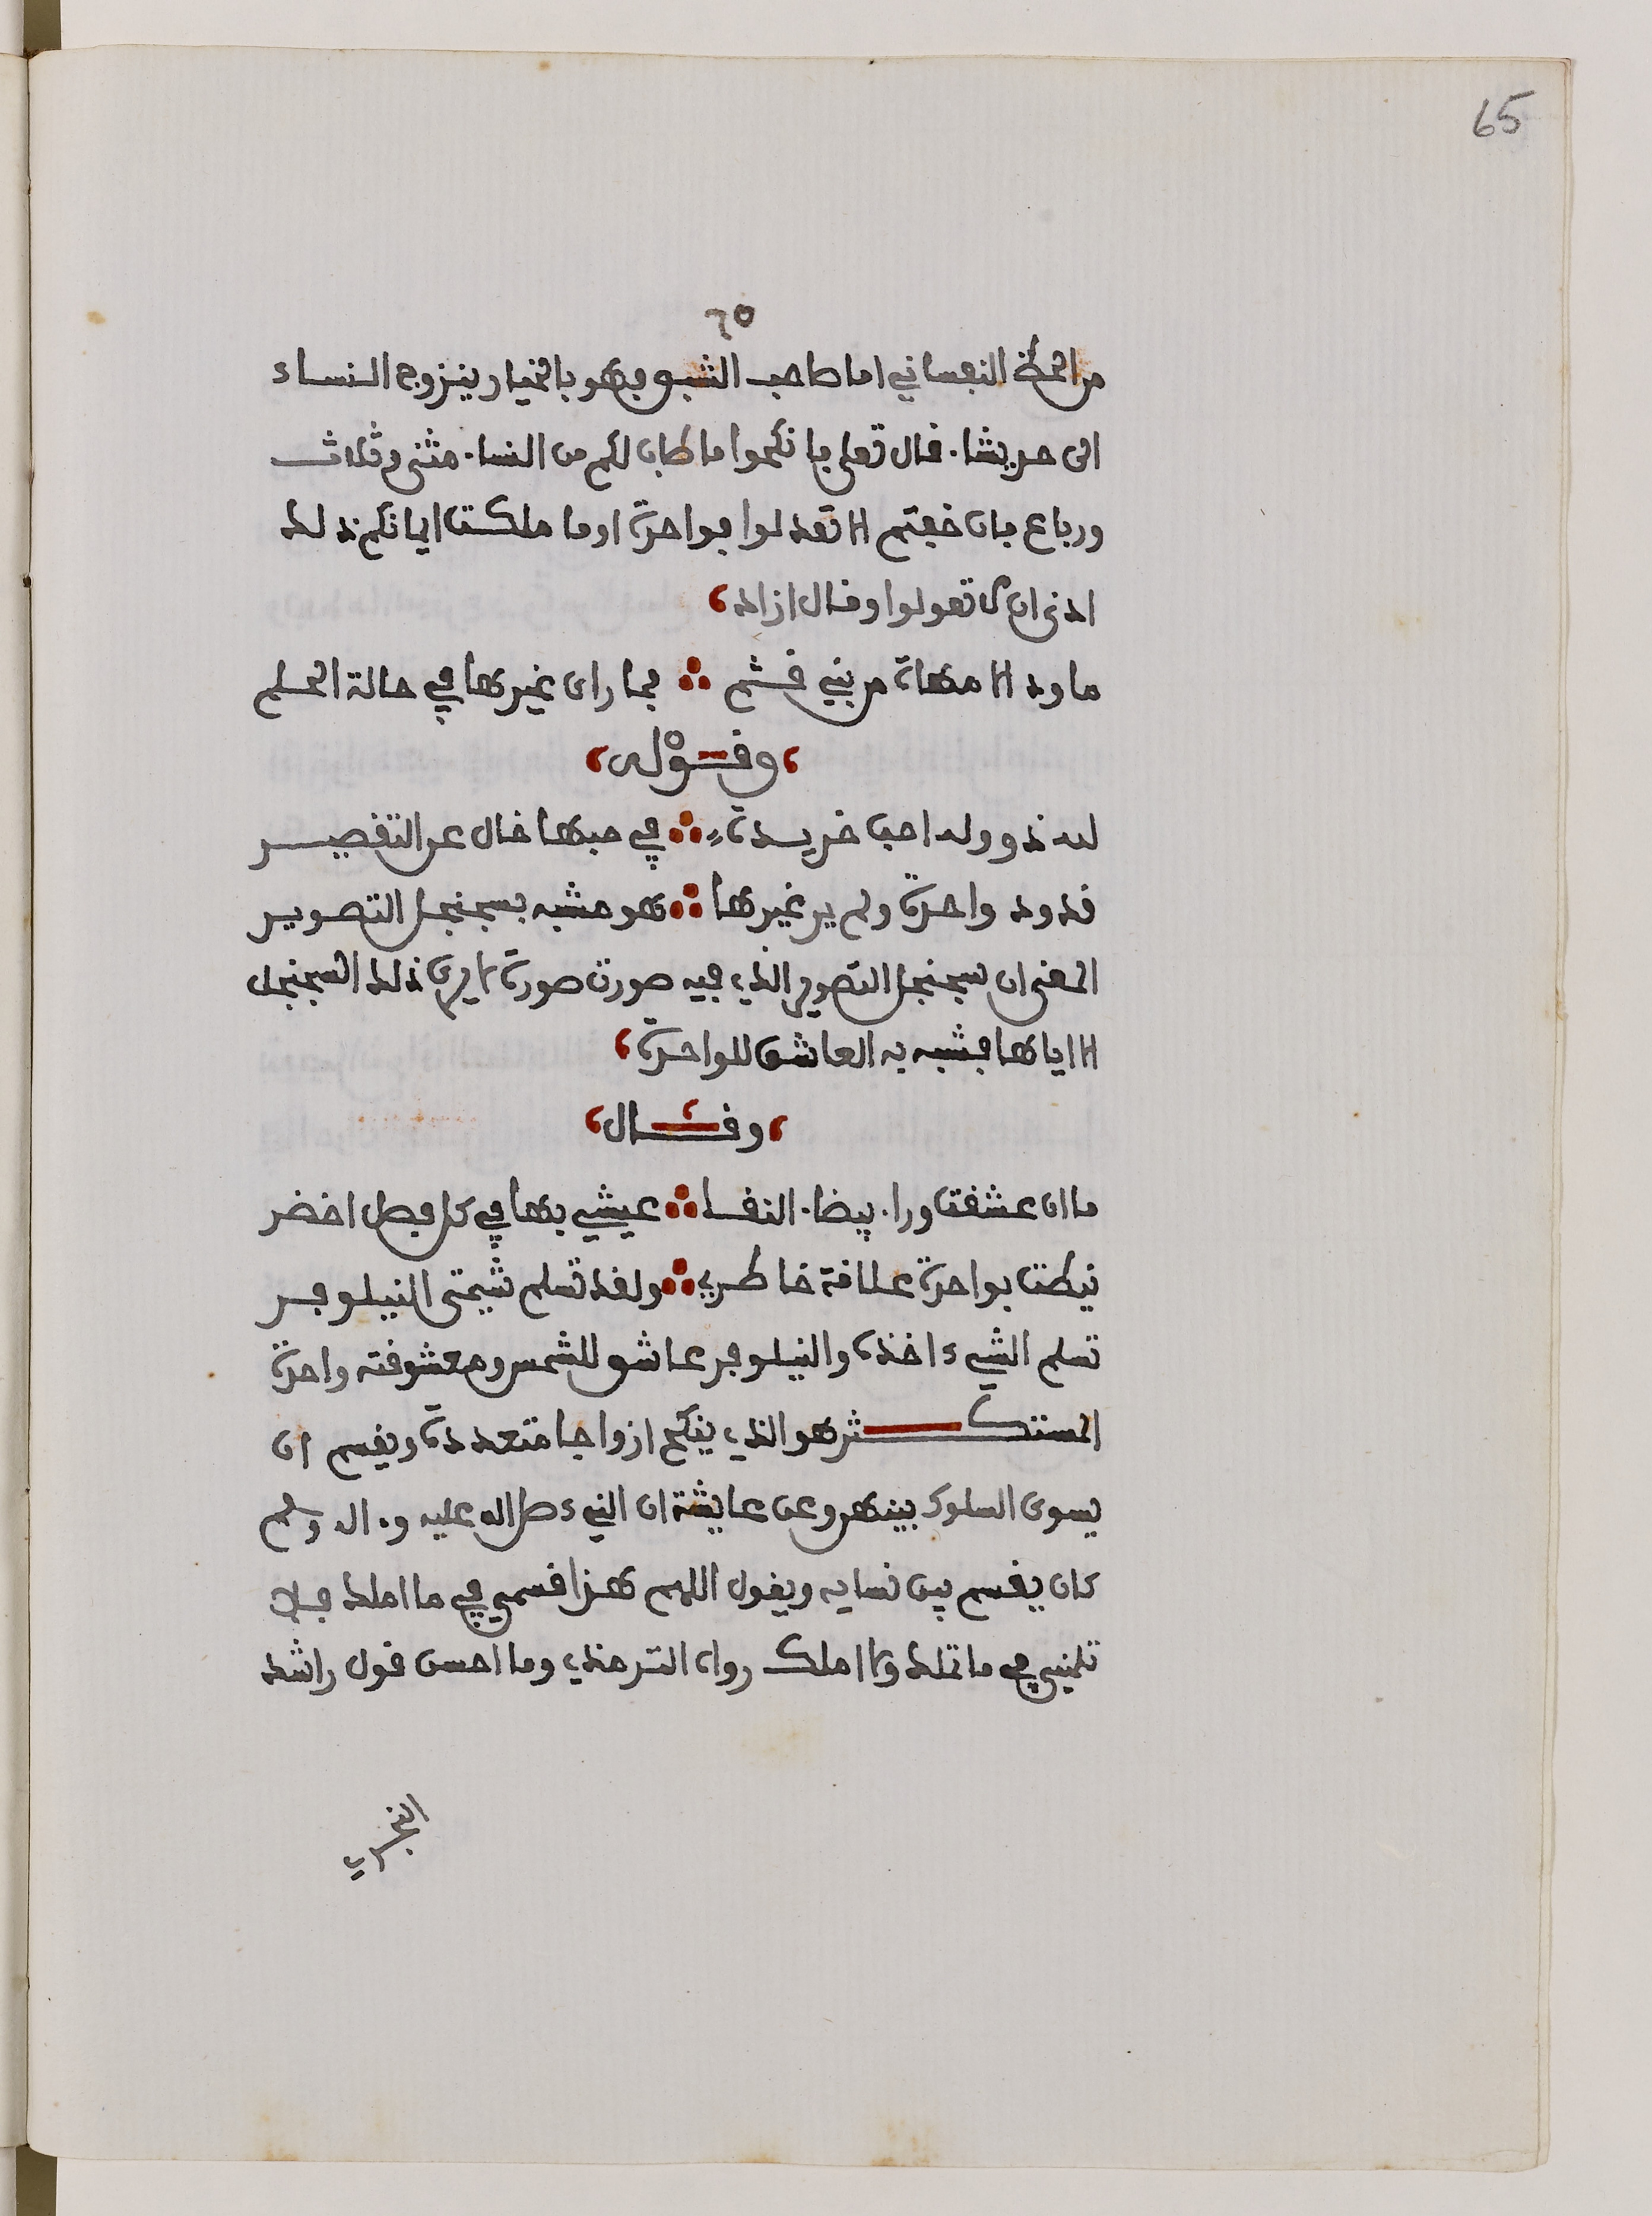 65
٦٥
من الحظ النفساني اما صاحب الشبق فهو بالخيار يتزوج النساء
الى حريشا. قال تعلى فانكحوا ما طاب لكم من النساء مثنى وثلاث
ورباع فان خفتم الا تعدلوا فواحدة او ما ملكت ايمانكم ذلك
ادنى ان لا تعولوا وقال ازاد،
ما ود الا مهاة من بني قشم ∴ فما راى غيرها في حالة الحلم
، وقوله ،
لله ذو وله احب خريدة ∴ في حبها خال عن التقصير
قد ود واحدة ولم ير غيرها ∴ هو مشبه بسجنجل التصوير
المعنى ان سجنجل التصوير الذي فيه صورت صورة لا يرى ذلك السجنجل
الا اياها فشبه به العاشق للواحدة،
، وقال ،
ما ان عشقت وراء بيضاء النقا ∴ عيشي بها في كل فصل اخضر
نيطت بواحدة علاقة خاطري ∴ ولقد تسلم شيمتي النيلوفر
تسلم الشيء اخذه والنيلوفر عاشق للشمس ومعشوقته واحدة
المستكثر هو الذي ينكح ازواجا متعددة ويقسم ان
يسوى السلوك بينهن وعن عايشة ان النبيء صلى الله عليه وءاله وسلم
كان يقسم بين نسايه ويقول اللهم هذا قسمي في ما املك فلا
تلمني في ما تملك ولا املك رواه الترمذي وما احسن قول راشد